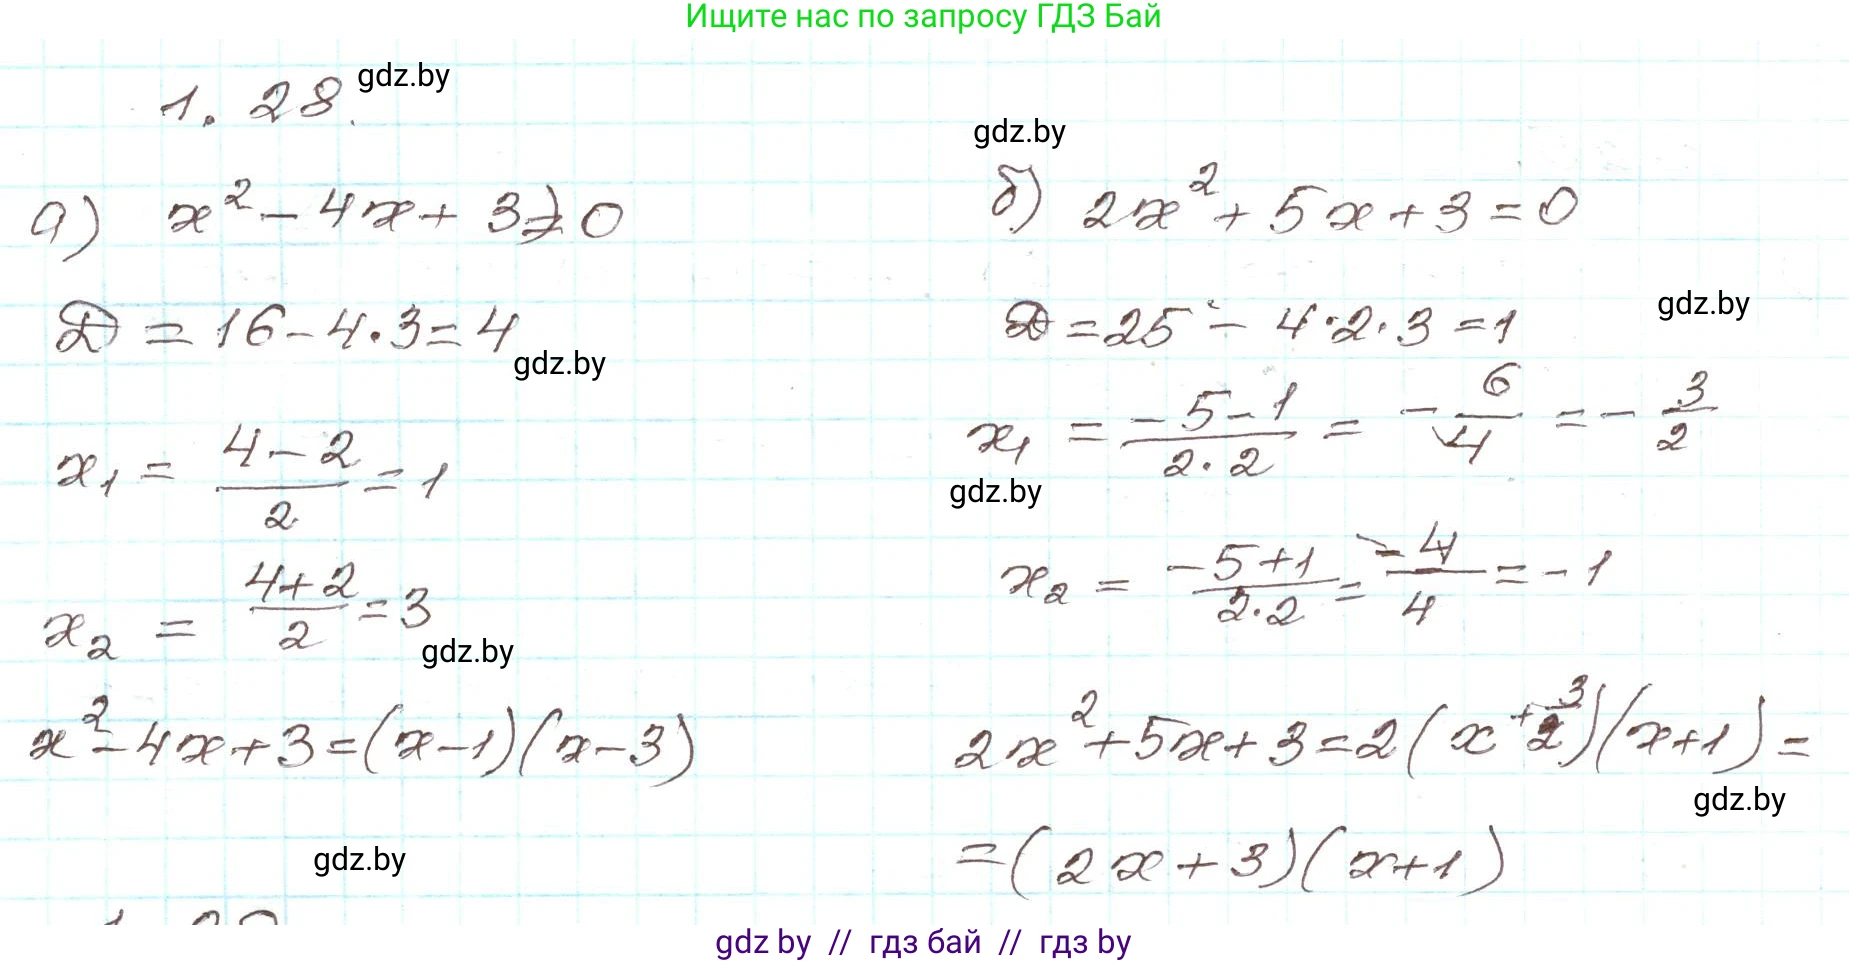 Ищите нас по запросу ГДЗ Бай
1.28.
gdz.by
gdz.by
а) x² - 4x + 3 = 0
D = 16 - 4·3 = 4
gdz.by
x₁ = (4 - 2)/2 = 1
x₂ = (4 + 2)/2 = 3
gdz.by
x² - 4x + 3 = (x - 1)(x - 3)
gdz.by
б) 2x² + 5x + 3 = 0
gdz.by
D = 25 - 4·2·3 = 1
x₁ = (-5 - 1)/(2·2) = -6/4 = -3/2
gdz.by
x₂ = (-5 + 1)/(2·2) = -4/4 = -1
2x² + 5x + 3 = 2(x + 3/2)(x + 1) =
gdz.by
= (2x + 3)(x + 1)
gdz by // гдз бай // гдз by